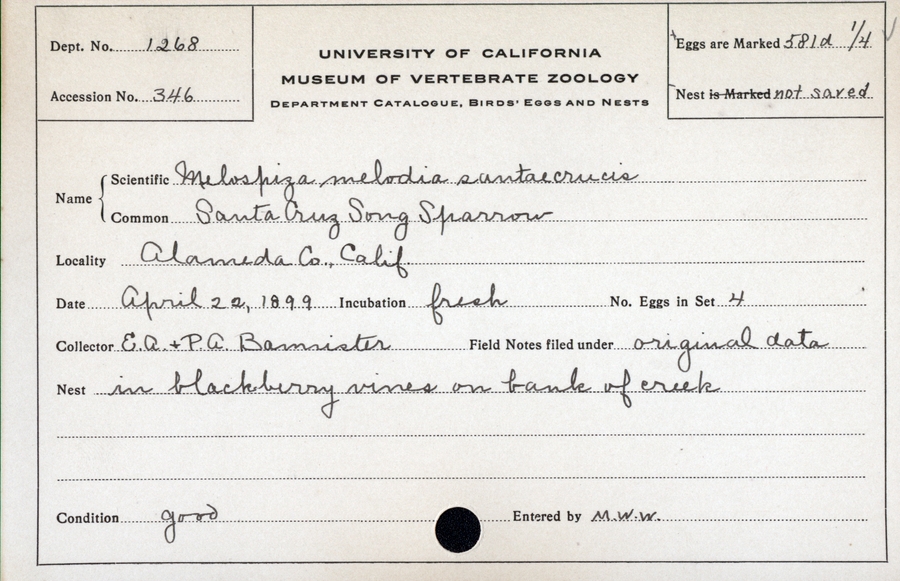 Dept. No. 1268
Accession No. 346
UNIVERSITY OF CALIFORNIA
MUSEUM OF VERTEBRATE ZOOLOGY
DEPARTMENT CATALOGUE, BIRDS' EGGS AND NESTS
Eggs are Marked 581d 1/4
Nest is Marked not saved
Name
Scientific Melospiza melodia santaecrucis
Common Santa Cruz Song Sparrow
Locality Alameda Co., Calif.
Date April 22, 1899 Incubation fresh No. Eggs in Set 4
Collector E.A. + P.A. Bannister Field Notes filed under original data
Nest in blackberry vines on bank of creek
Condition good Entered by M.W.W.